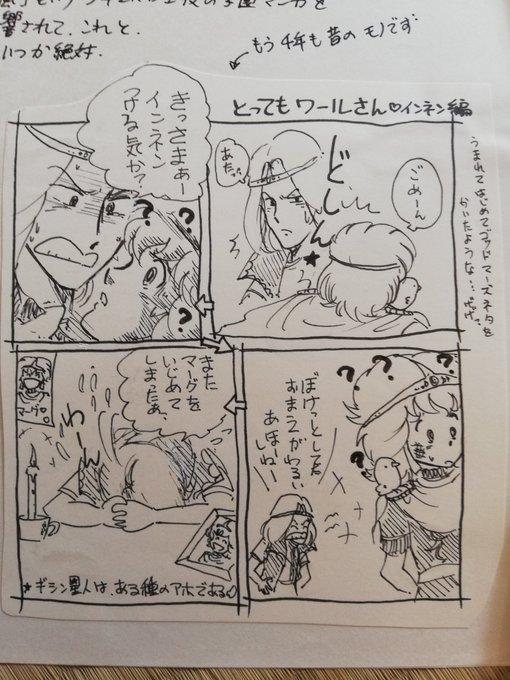 響されて、これと、
いつか絶対、
もう千年も昔のモノです
とってもワールさん♡インネン編
うまれてはじめてゴッドマーズネタを
かいたような…
ごめーん
どしーん
あたっ
きっさまぁー
インネン
つける気か?
? ? ?
? ? ? ?
ぼけっとしてた
おまえがわるい
あほー
しねー
また
マーグを
いじめて
しまったぁ、
うーん
マーグ♡
★ギシン星人は、ある種のアホである♡